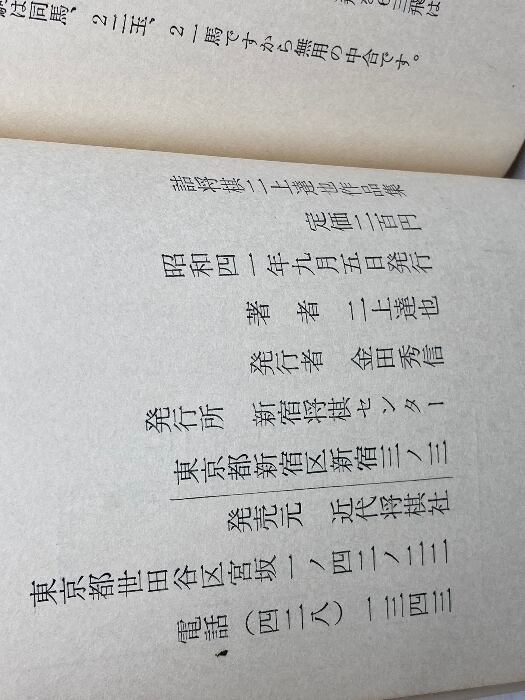 は同馬、2二玉、2一馬ですから無用の中合です。
詰将棋二上達也作品集
定価二百円
昭和四一年九月五日発行
著者 二上達也
発行者 金田秀信
発行所 新宿将棋センター
東京都新宿区新宿三ノ三
発売元 近代将棋社
東京都世田谷区宮坂一ノ四二ノ二二
電話(四二八)一三四三